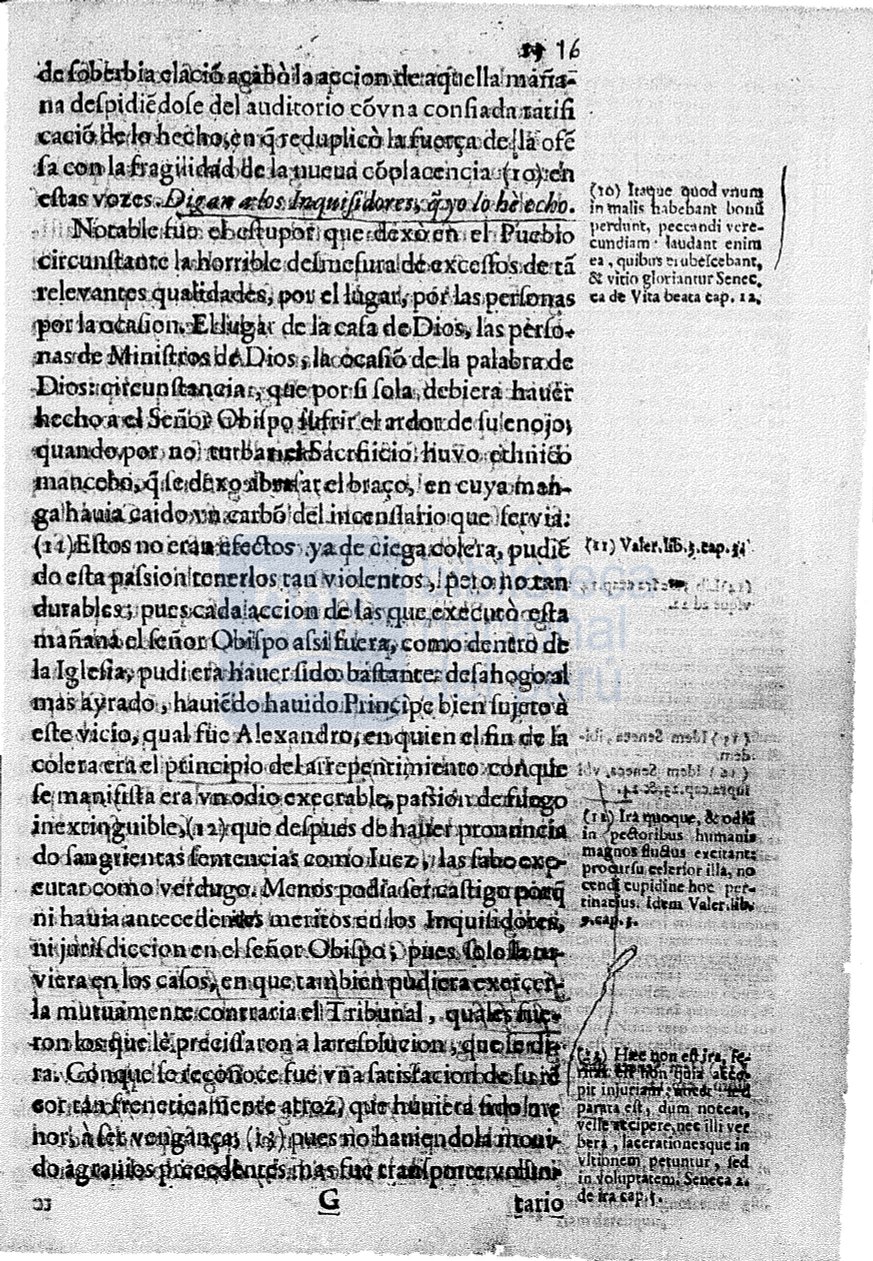 16
de soberbia elació acabò la accion de aquella maña-
na despidiẽdose del auditorio cõ vna confiada ratifi
cació de lo hecho, en q̃ reduplicò la fuerça de la ofẽ
sa con la fragilidad de la nueua cõplacencia (10) en
estas vozes. Digan a los Inquisidores, q̃ yo lo hè echo.
Notable fue el estupor que dexò en el Pueblo
circunstante la horrible desmesura de excessos de tã
relevantes qualidades, por el lugar, por las personas
por la ocasion. El lugar de la casa de Dios, las perso-
nas de Ministros de Dios, la ocasiõ de la palabra de
Dios: circunstancia, que por si sola, debiera hauer
hecho a el Señor Obispo sufrir el ardor de su enojo;
quando por no turbar el Sacrificio huvo ethnico
mancebo, q̃ se dexo abrasar el braço, en cuya man-
ga hauia caido vn carbõ del incensario que servia:
(11) Estos no eran efectos ya de ciega colera, pudiẽ
do esta passion tenerlos tan violentos, pero no tan
durables; pues cada accion de las que executò esta
mañana el señor Obispo assi fuera, como dentro de
la Iglesia, pudiera hauer sido bastante desahogo al
mas ayrado, hauiẽdo hauido Principe bien sujeto a
este vicio, qual fue Alexandro, en quien el fin de la
colera era el principio del arrepentimiento conque
se manifista era vn odio execrable, passion de fuego
inextinguible, (12) que despues de hauer pronuncia
do sangrientas sentencias como Iuez, las sabe exe-
cutar como verdugo. Menos podia ser castigo porq̃
ni hauia antecedentes meritos en los Inquisidores,
ni jurisdiccion en el señor Obispo; pues solo la tu-
viera en los casos, en que tambien pudiera exercer-
la mutuamente contra el Tribunal, quales fue-
ron los que le precissaron a la resolucion, que se di-
ra. Conque se reconoce fue vna satisfacion de su rẽ
cor tan freneticamente atroz, que huuiera sido me
nor, à ser venganças (13) pues no hauiendola moui-
do agrauios precedentes mas fue transporte volun-
G
tario
(10) Itaque quod vnum
in malis habebant bonũ
perdunt, peccandi vere-
cundiam laudant enim
ea, quibus erubescebant,
& vitio gloriantur Senec.
ca de Vita beata cap. 12.
(11) Valer. lib. 3. cap. 3.
(12) Ira quoque, & odiũ
in pectoribus humanis
magnos fluctus excitant:
procursu celerior illa, no
cendi cupidine hoc per-
tinatius. Idem Valer. lib.
9. cap. 3.
(13) Hæc non est ira, fe-
ritas est non quia acce-
pit injuriam sed
parata est, dum noceat,
velle recipere, nec illi ver
bera, lacerationesque in
vltionem petuntur, sed
in voluptatem. Seneca 2.
de ira cap. 5.